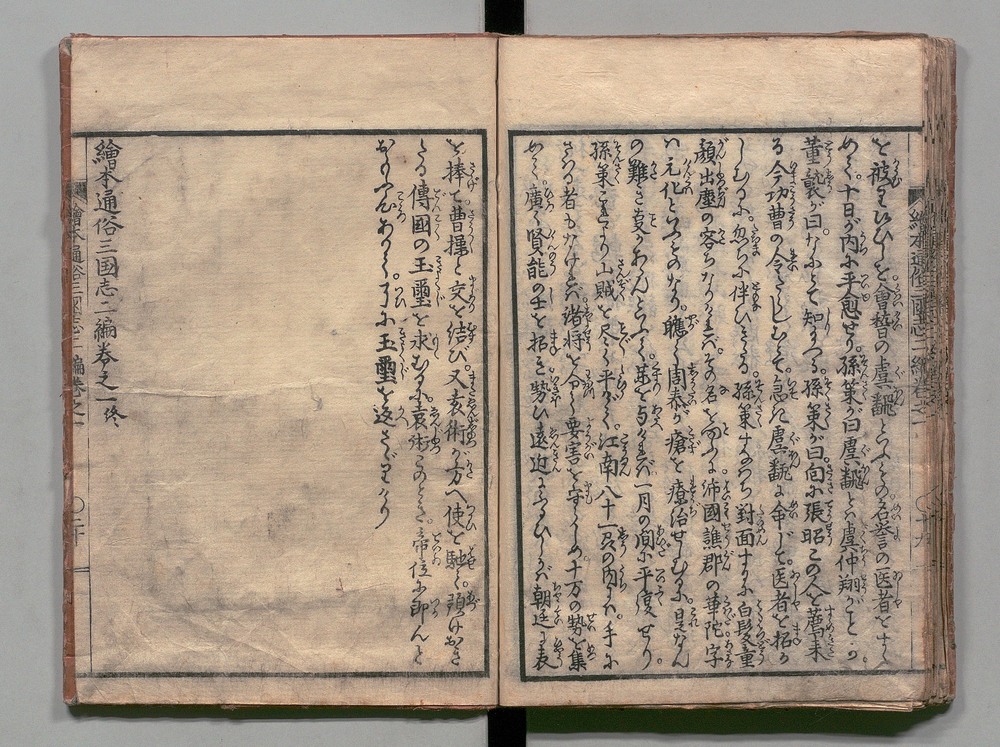 を被りひしを會稽の虞翻といふもの名誉の医者をすゝ
めて十日が内に平愈せり。孫策が曰虞翻とハ虞仲翔がことか。
董襲が曰。なにとして知りつる。孫策が曰向に張昭この人を薦来
る今功曹の令たらしむとて。急に虞翻に命じて医者を招か
しむるに。忽に伴ひきたる。孫策すなハち對面するに白髪童
顔出塵の容ちなりけれバその名をとふに沛國譙郡の華陀字
ハ元化といふものなり。聽て周泰が瘡を療治せしむるに。是なん
の難き夏かあらんとて。薬を与へけれバ一月の間に平復せり。
孫策これより山賊を尽く平らげ。江南八十一郡の内みな手に
さハる者もなけれバ諸将を分て要害を守らしめ。十万の勢を集
め。廣く賢能の士を招き勢ひ遠近にふるひしかバ朝廷に表
を捧て曹操と交を結び。又袁術が方へ使を馳て。預けおき
たる傳國の玉璽を求むるに袁術このとき。帝位に即んと
おもふ心ありて。ついに玉璽を返さゞりけり
繪本通俗三国志二編巻之一終
繪本通俗三國志二編巻之一
〇十九
繪本通俗三國志二編巻之一
〇二十